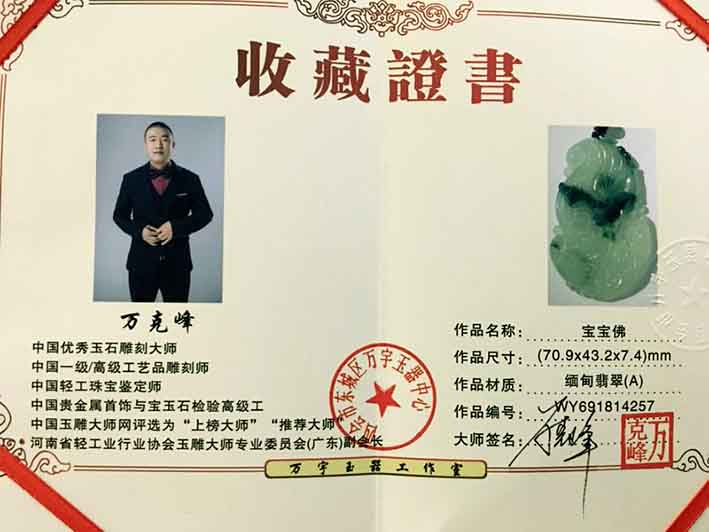 收藏證書
万克峰
中国优秀玉石雕刻大师
中国一级/高级工艺品雕刻师
中国轻工珠宝鉴定师
中国贵金属首饰与宝玉石检验高级工
中国玉雕大师网评选为“上榜大师”“推荐大师”
河南省轻工业行业协会玉雕大师专业委员会(广东)副会长
作品名称： 宝宝佛
作品尺寸： (70.9x43.2x7.4)mm
作品材质： 缅甸翡翠(A)
作品编号： WY691814257
大师签名：
万克峰
市东城区万字玉器中心
万字玉器工作室